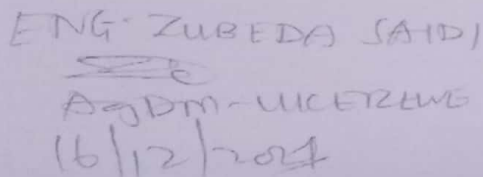 ENG. ZUBEDA SAIDI
AgDM-UKEREWE
16/12/2021